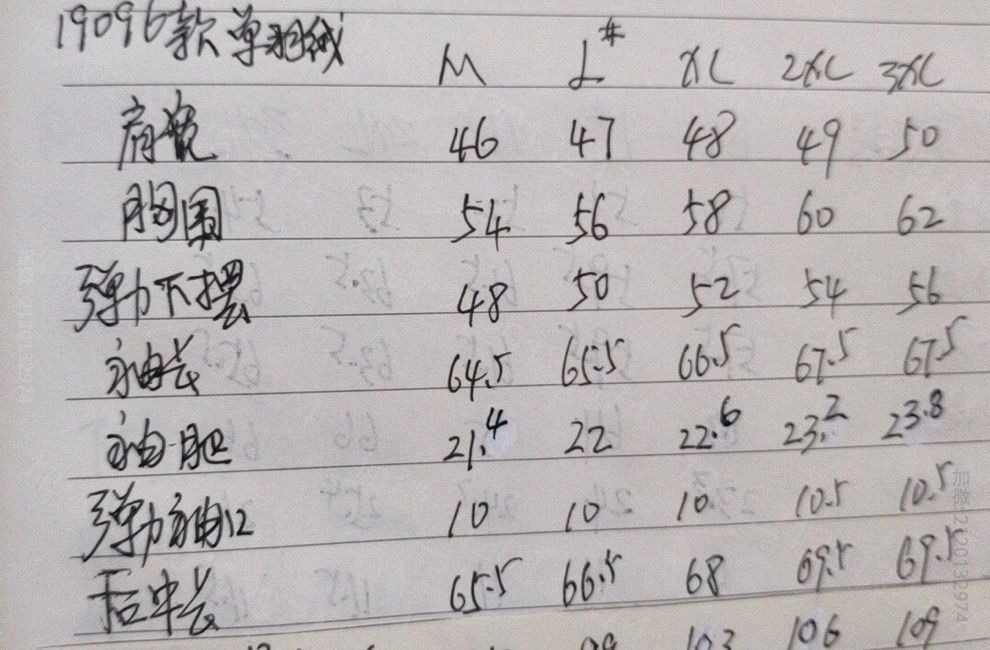 19096款单羽绒
M L# XL 2XL 3XL
肩宽 46 47 48 49 50
胸围 54 56 58 60 62
弹力下摆 48 50 52 54 56
袖长 64.5 65.5 66.5 67.5 67.5
袖肥 21.4 22 22.6 23.2 23.8
弹力袖口 10 10 10 10.5 10.5
后中长 65.5 66.5 68 69.5 69.5
103 106 109